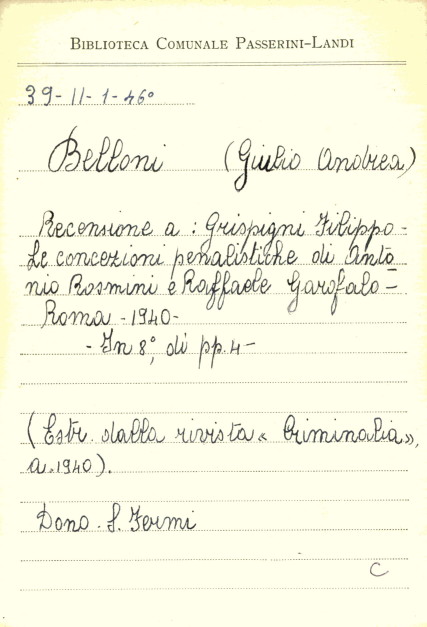 BIBLIOTECA COMUNALE PASSERINI-LANDI
39-II-1-46°
Belloni (Giulio Andrea)
Recensione a: Grispigni Filippo -
Le concezioni penalistiche di Anto
nio Rosmini e Raffaele Garofalo =
Roma - 1940 -
- In 8°, di pp. 4 -
(Estr. dalla rivista « Criminalia »,
a. 1940).
Dono . S. Fermi
C